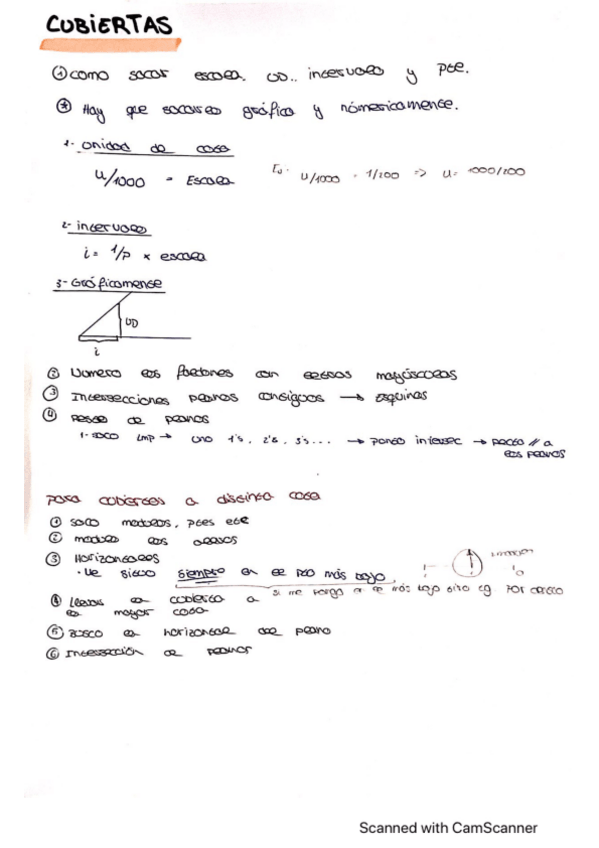 CUBIERTAS
① como sacar escala, UD.., intervalo y pte.
* Hay que sacarlo gráfica y númericamente.
1- Unidad de cota
U/1000 = Escala
Ej. U/1000 = 1/200 => U= 1000/200
2- intervalo
i= 1/p x escala
3- Gráficamente
UD
i
② Numero los faldones con letras mayúsculas
③ Intersecciones planos contiguos → Esquinas
④ Resto de planos
1- saco LMP → uno 1's, 2's, 3's... → pongo intersec → recta // a
los planos
para cubiertas a distinta cota
① saco modulos, ptes etc
② modulo los aleros
③ Horizontales
· Me sitúo siempre en el pto más bajo,
si me pongo en el más bajo otro cg por cerco
④ Llevar la cubierta a
la mayor cota
⑤ Busco la horizontal del plano
⑥ Intersección de planos
Scanned with CamScanner